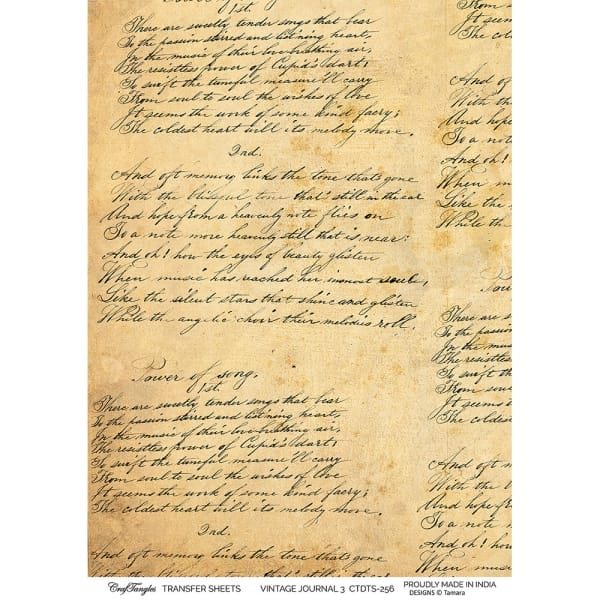 1st.
There are sweetly tender songs that bear
To the passion stirred and list'ning heart,
In the music of their love-breathing air,
The resistless power of Cupid's dart:
To swift the tuneful measure'll carry
From soul to soul the wishes of love
It seems the work of some kind faery;
The coldest heart will its melody move.
2nd.
And oft memory links the tone that's gone
With the blissful tone that's still in the ear
And hope from a heavenly note flies on
To a note more heavenly still that is near:
And oh! how the eyes of beauty glisten
When music has reached her inmost soul,
Like the silent stars that shine and glisten
While the angelic choir their melodies roll.
Power of song.
1st.
There are sweetly tender songs that bear
To the passion stirred and list'ning heart,
In the music of their love-breathing air,
The resistless power of Cupid's dart:
To swift the tuneful measure'll carry
From soul to soul the wishes of love
It seems the work of some kind faery;
The coldest heart will its melody move.
2nd.
And oft memory links the tone that's gone
With the blissful tone that's still in the ear
It seem
The cold
And of
With the
And hope
To a not
And oh!
When m
Like the
While the
Pow
There are
To the passion
In the mus
The resistless
To swift th
From soul
It seems
The coldest
And oft m
With the
And hope f
To a note
And oh! h
When mus
CrafTangles TRANSFER SHEETS VINTAGE JOURNAL 3 CTDTS-256 PROUDLY MADE IN INDIA
DESIGNS © Tamara